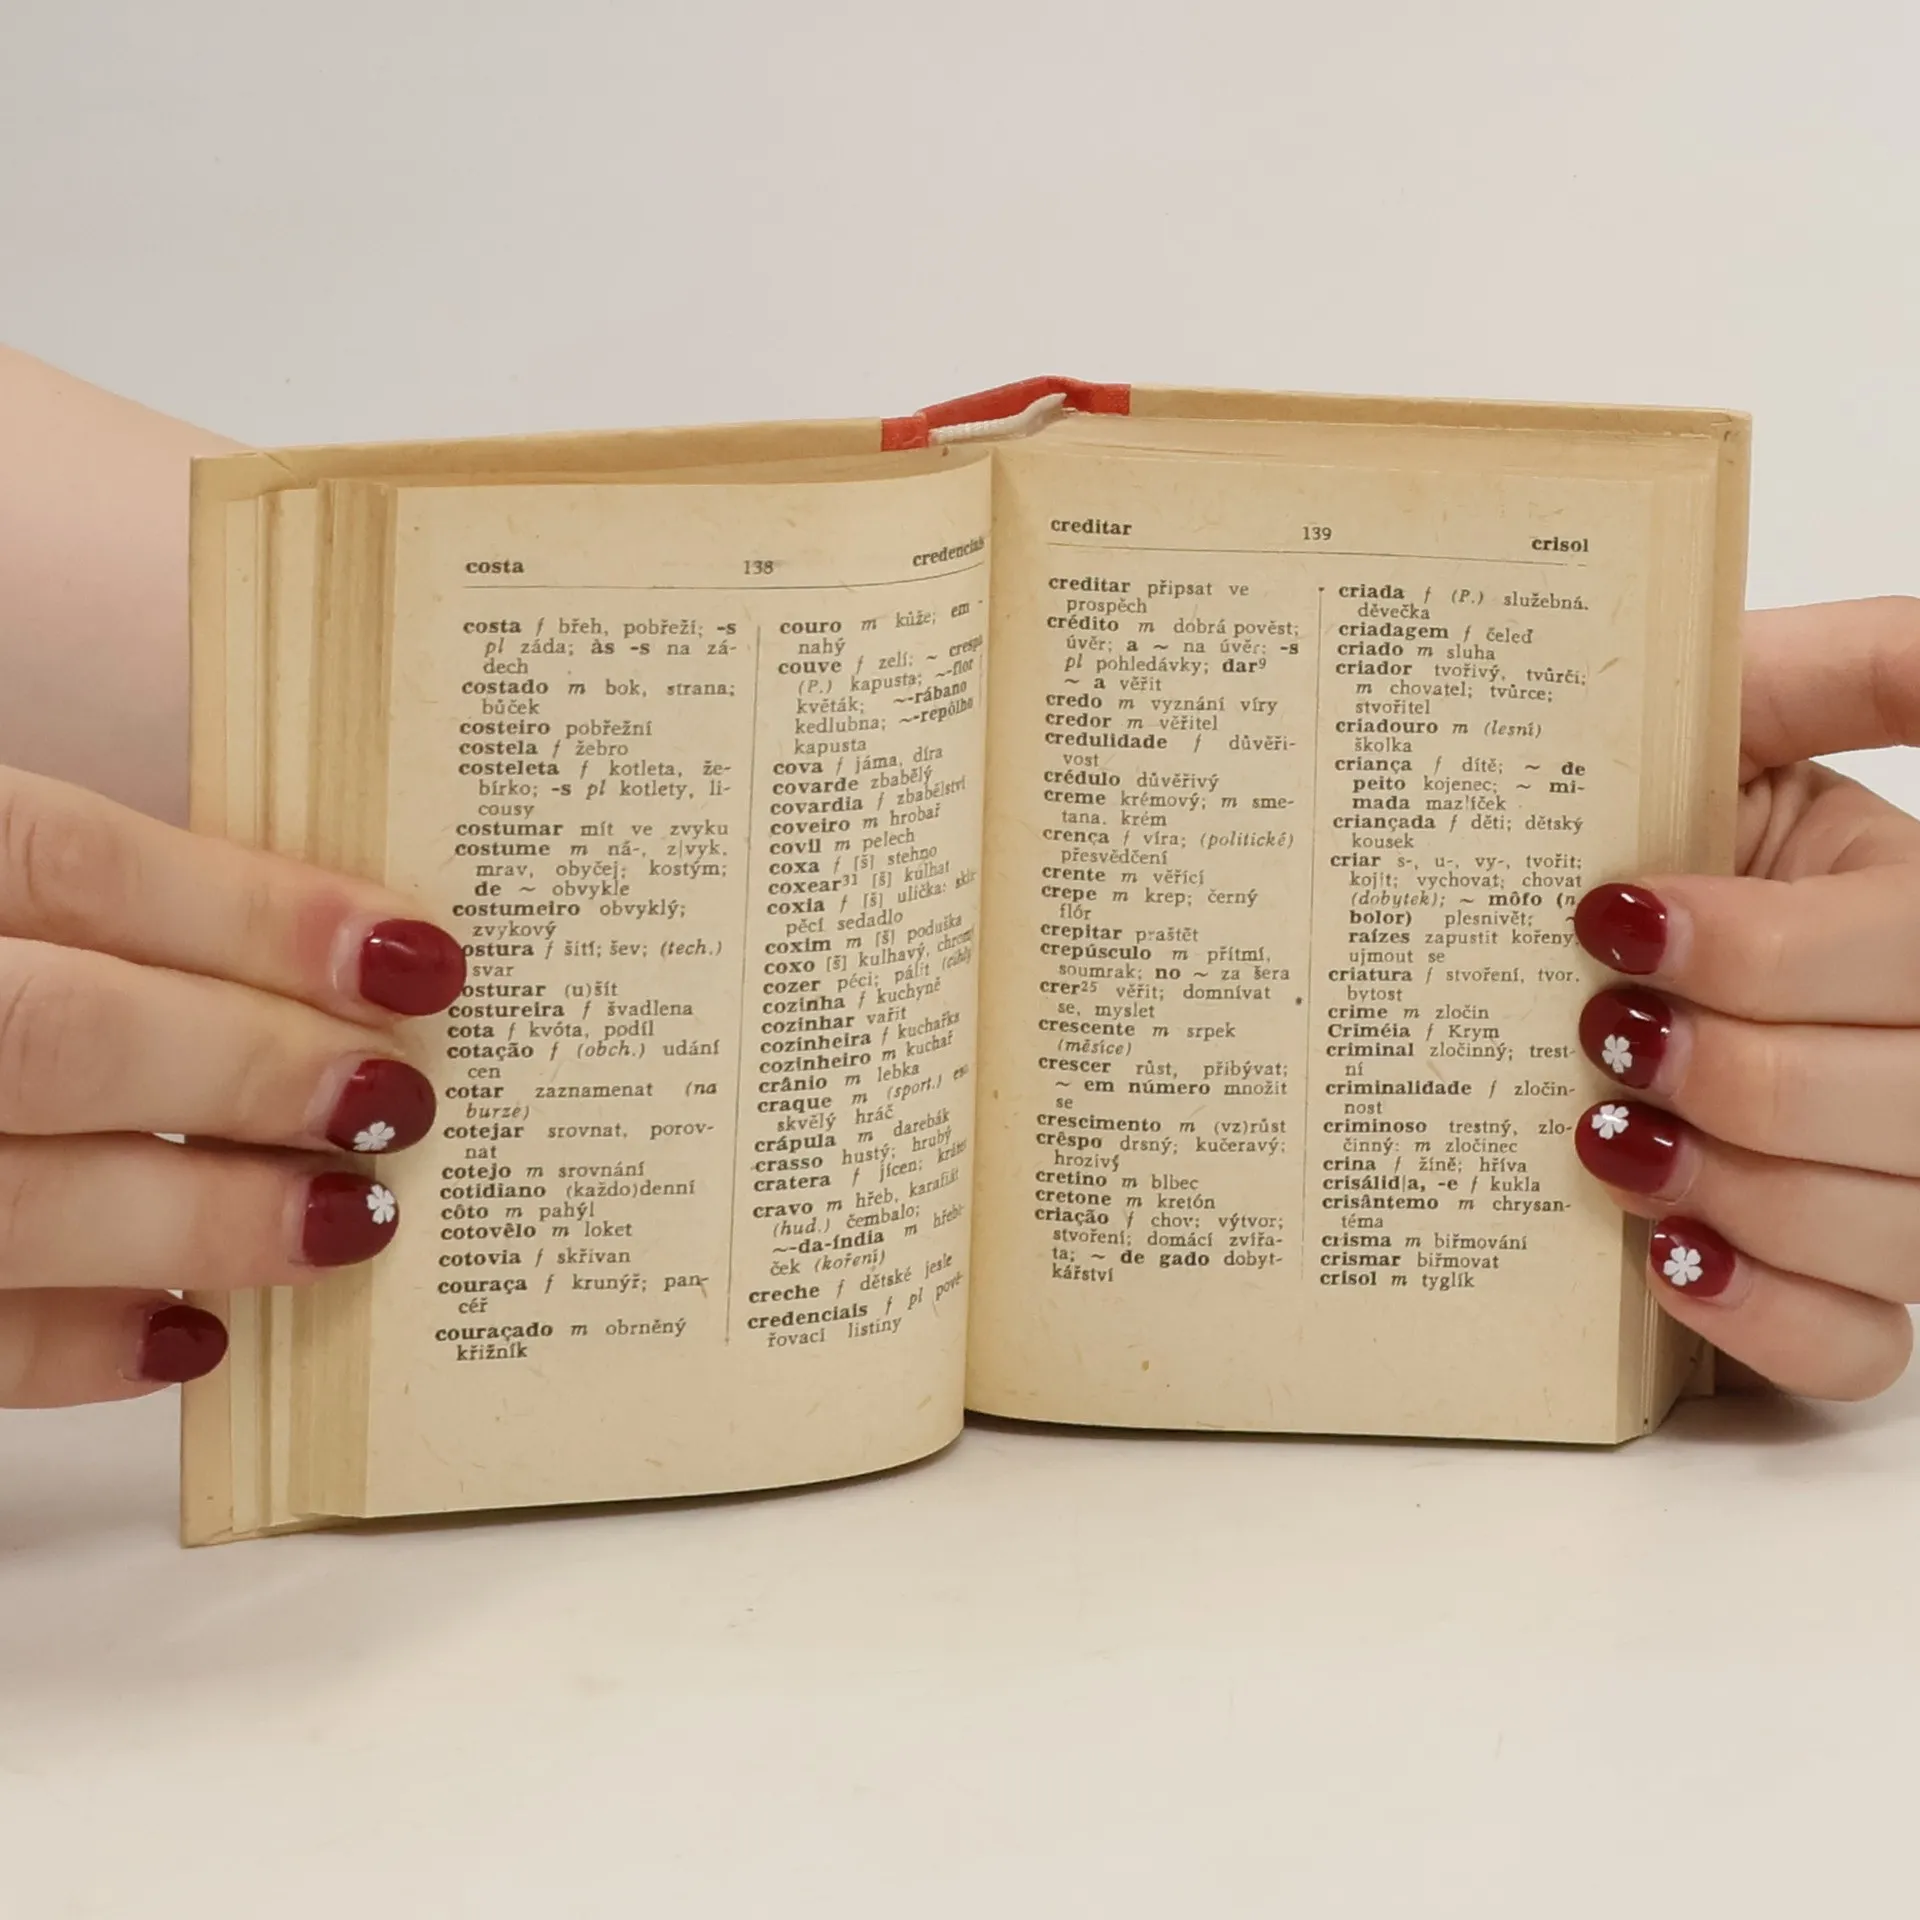 costa 138 credenciais
costa f břeh, pobřeží; -s
pl záda; às -s na zá-
dech
costado m bok, strana;
bůček
costeiro pobřežní
costela f žebro
costeleta f kotleta, že-
bírko; -s pl kotlety, li-
cousy
costumar mít ve zvyku
costume m ná-, z|vyk,
mrav, obyčej; kostým;
de ~ obvykle
costumeiro obvyklý;
zvykový
ostura f šití; šev; (tech.)
svar
osturar (u)šít
costureira f švadlena
cota f kvóta, podíl
cotação f (obch.) udání
cen
cotar zaznamenat (na
burze)
cotejar srovnat, porov-
nat
cotejo m srovnání
cotidiano (každo)denní
côto m pahýl
cotovêlo m loket
cotovia f skřivan
couraça f krunýř; pan-
céř
couraçado m obrněný
křižník
couro m kůže; em -
nahý
couve f zelí; ~ crespa
(P.) kapusta; ~-flor
květák; ~-rábano
kedlubna; ~-repôlho
kapusta
cova f jáma, díra
covarde zbabělý
covardia f zbabělství
coveiro m hrobař
covil m pelech
coxa f [š] stehno
coxear³¹ [š] kulhat
coxia f [š] ulička; skl
pěcí sedadlo
coxim m [š] poduška
coxo [š] kulhavý, chromý
cozer péci; pálit (cihly
cozinha f kuchyně
cozinhar vařit
cozinheira f kuchařka
cozinheiro m kuchař
crânio m lebka
craque m (sport.) eso
skvělý hráč
crápula m darebák
crasso hustý; hrubý
cratera f jícen; kráter
cravo m hřeb, karafiát
(hud.) čembalo;
~-da-índia m hřebí-
ček (koření)
creche f dětské jesle
credenciais f pl pově-
řovací listiny
creditar 139 crisol
creditar připsat ve
prospěch
crédito m dobrá pověst;
úvěr; a ~ na úvěr; -s
pl pohledávky; dar⁹
~ a věřit
credo m vyznání víry
credor m věřitel
credulidade f důvěři-
vost
crédulo důvěřivý
creme krémový; m sme-
tana, krém
crença f víra; (politické)
přesvědčení
crente m věřící
crepe m krep; černý
flór
crepitar praštět
crepúsculo m přítmí,
soumrak; no ~ za šera
crer²⁵ věřit; domnívat
se, myslet
crescente m srpek
(měsíce)
crescer růst, přibývat;
~ em número množit
se
crescimento m (vz)růst
crêspo drsný; kučeravý;
hrozivý
cretino m blbec
cretone m kretón
criação f chov; výtvor;
stvoření; domácí zvířa-
ta; ~ de gado dobyt-
kářství
criada f (P.) služebná,
děvečka
criadagem f čeleď
criado m sluha
criador tvořivý, tvůrčí;
m chovatel; tvůrce;
stvořitel
criadouro m (lesní)
školka
criança f dítě; ~ de
peito kojenec; ~ mi-
mada mazlíček
criançada f děti; dětský
kousek
criar s-, u-, vy-, tvořit;
kojit; vychovat; chovat
(dobytek); ~ môfo (n.
bolor) plesnivět; ~
raízes zapustit kořeny,
ujmout se
criatura f stvoření, tvor,
bytost
crime m zločin
Criméia f Krym
criminal zločinný; trest-
ní
criminalidade f zločin-
nost
criminoso trestný, zlo-
činný; m zločinec
crina f žíně; hříva
crisálid|a, -e f kukla
crisântemo m chrysan-
téma
crisma m biřmování
crismar biřmovat
crisol m tyglík